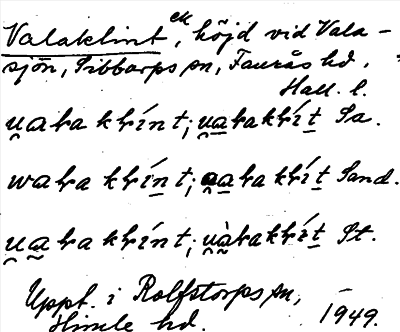 Valaklint ek, höjd vid Vala-
sjön, Sibbarps sn, Faurås hd.
Hall. l.
u̯aɩa kɩínt; u̯aɩakɩít Sa.
waɩa kɩínt; u̯aɩa kɩít Sand.
u̯aɩa kɩínt; u̯àɩakɩít St.
Uppt. i Rolfstorps sn,
Himle hd. 1949.